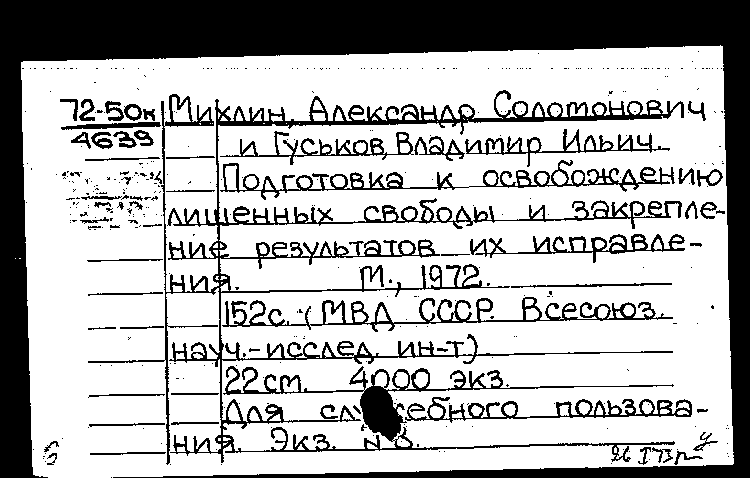 72-50к Михлин, Александр Соломонович
4639 и Гуськов, Владимир Ильич.
Подготовка к освобождению
лишенных свободы и закрепле-
ние результатов их исправле-
ния. М., 1972.
152с. (МВД СССР. Всесоюз.
науч.-исслед. ин-т.)
22 см. 4000 экз.
Для служебного пользова-
ния. Экз. №